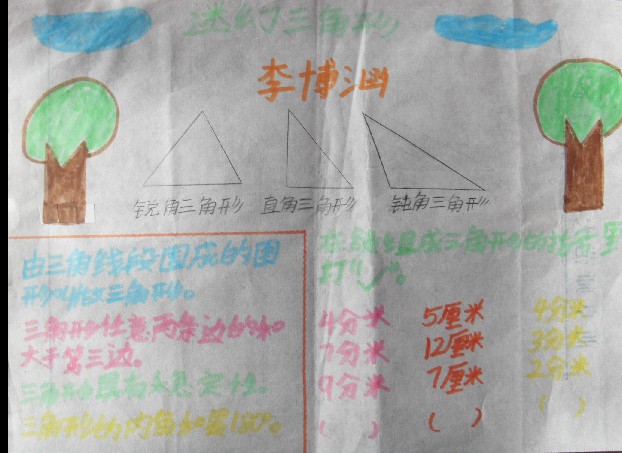 迷幻三角形
李博汕
锐角三角形 直角三角形 钝角三角形
由三角线段围成的图
形叫做三角形。
三角形任意两条边的和
大于第三边。
三角形具有稳定性。
三角形的内角和是180°。
在能组成三角形的括号里
打“√”。
4分米 5厘米 4分米
7分米 12厘米 3分米
9分米 7厘米 2分米
( ) ( ) ( )